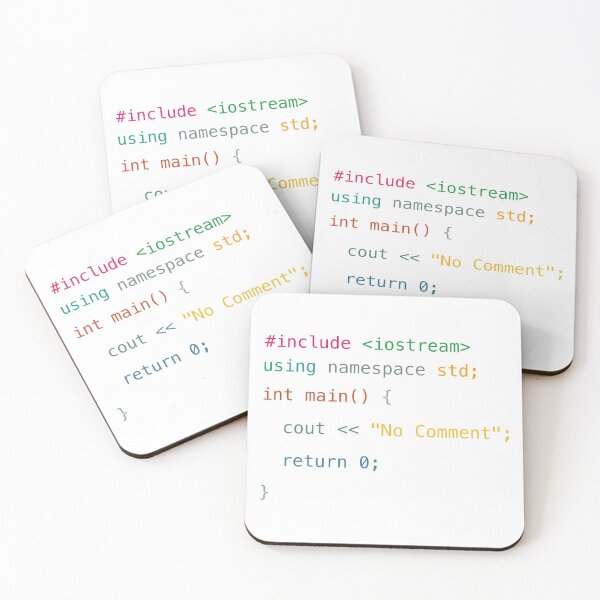 #include <iostream>
using namespace std;
int main() {
cou
Comme
#include <iostream>
using namespace std;
int main() {
cout << "No Comment";
return 0;
#include <iostream>
using namespace std;
int main() {
cout << "No Comment";
return 0;
}
#include <iostream>
using namespace std;
int main() {
cout << "No Comment";
return 0;
}